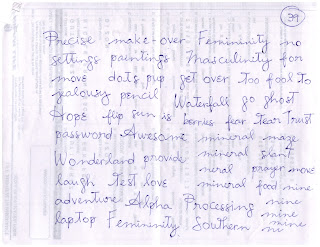 39
Precise make-over Femininity no
settings paintings Masculinity for
move dots pup get over too fool to
jealousy pencil Waterfall go ghost
Hope flip sun is berries fear tear trust
password Awesome mineral maze
Wonderland provide mineral giant
laugh test love neral prayer move
adventure Alpha Processing mineral food nine
laptop Femininity Southern nine
mine
mine
ni